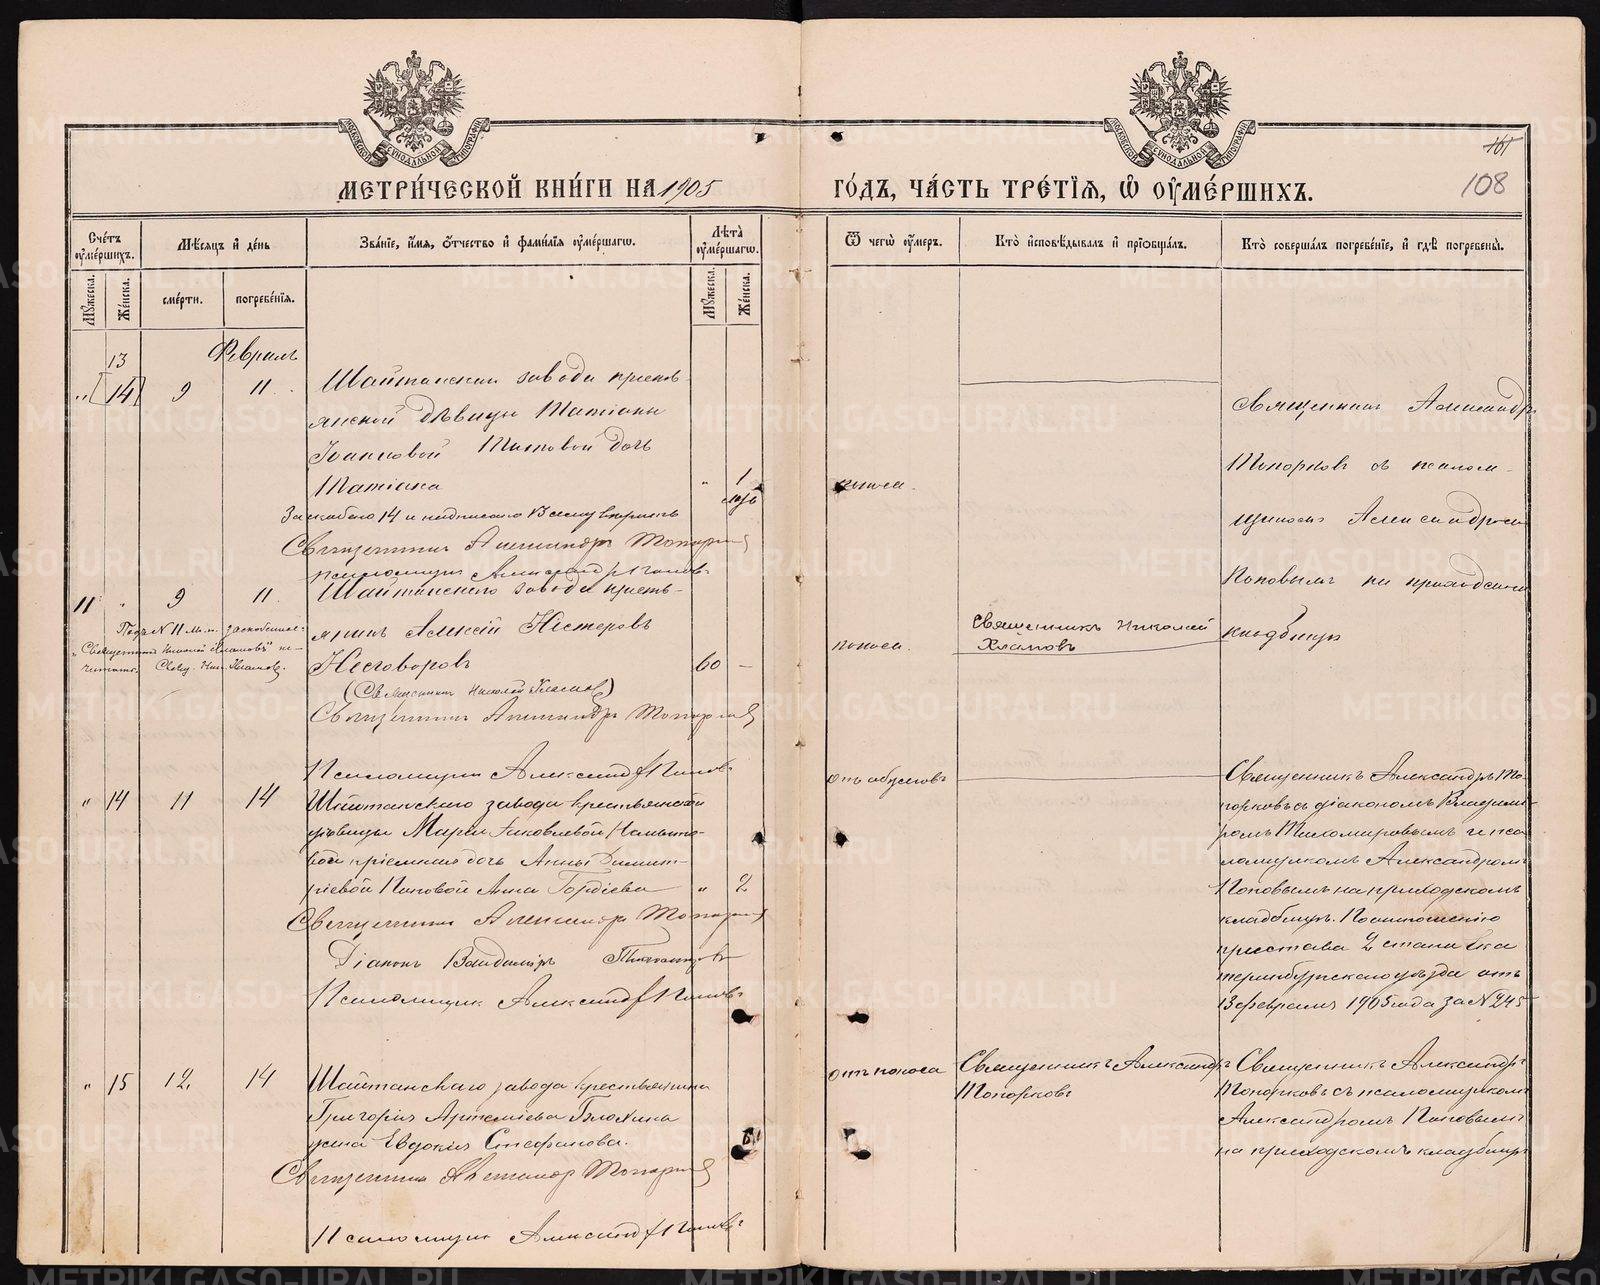 МЕТРИ́ЧЕСКОЙ КНИ́ГИ НА 1905
ГО́ДЪ, ЧА́СТЬ ТРЕ́ТІѦ, Ѡ҆ ОУ҆МЕ́РШИХЪ.
161
108
Сче́тъ оу҆ме́ршихъ.
Мѣ́сяцъ и҆ де́нь
Зва́ніе, и҆́мя, ѻ҆́тчество и҆ фами́лія оу҆ме́ршагѡ.
Лѣ́та оу҆ме́ршагѡ.
Ѿ чегѡ̀ оу҆́меръ.
Кто̀ и҆сповѣ́дывалъ и҆ пріѻбща́лъ.
Кто̀ соверша́лъ погребе́ніе, и҆ гдѣ̀ погребены̀.
Мꙋ́жеска.
Же́нска.
сме́рти.
погребе́нія.
Мꙋ́жеска.
Же́нска.
13
Февраль
" [14] 9 11.
Шайтанскаго завода крестья-
янской дѣвицы Татіаны
Іоанновой Титовой дочь
Татіана " 1
За скобкою 14 и надписано 13 сему вѣрить
Священникъ Александръ Топорковъ
псаломщикъ Александръ Поповъ
поноса.
Священникъ Александръ
Топорковъ съ псалом-
щикомъ Александромъ
Поповымъ на приходскомъ
кладбищѣ
11 " 9 11.
Шайтанскаго завода кресть-
янинъ Алексій Нестеровъ
Неговоровъ 60 –
(Священникъ Николай Хламовъ)
Священникъ Александръ Топорковъ
Псаломщикъ Александръ Поповъ
Подъ № 11 м. п. заскобленное
"Священникъ Николай Хламовъ" не
читать. Свящ. Ник. Хламов.
поноса.
Священникъ Николай
Хламовъ
" 14 11 14
Шайтанскаго завода крестьянской
дѣвицы Маріи Іаковлевой
вой пріемная дочь Анны Димит-
ріевой Поповой Анна Гордіева " 2
Священникъ Александръ Топорковъ
Діаконъ Владиміръ Тихомировъ
Псаломщикъ Александръ Поповъ
Священникъ Александръ То-
порковъ съ діакономъ Владимі-
ромъ Тихомировымъ и пса-
ломщикомъ Александромъ
Поповымъ на приходскомъ
кладбищѣ. По отношенію
пристава 2 стана Ека
теринбургскаго уѣзда отъ
13 февраля 1905 года за № 245
" 15 12. 14
Шайтанскаго завода крестьянина
Григорія Артеміева Блохина
жена Евдокія Стефанова.
Священникъ Александръ Топорковъ
Псаломщикъ Александръ Поповъ
отъ поноса
Священникъ Александръ
Топорковъ
Священникъ Александръ
Топорковъ съ псаломщикомъ
Александромъ Поповымъ
на приходскомъ кладбищѣ
METRIKI.GASO-URAL.RU